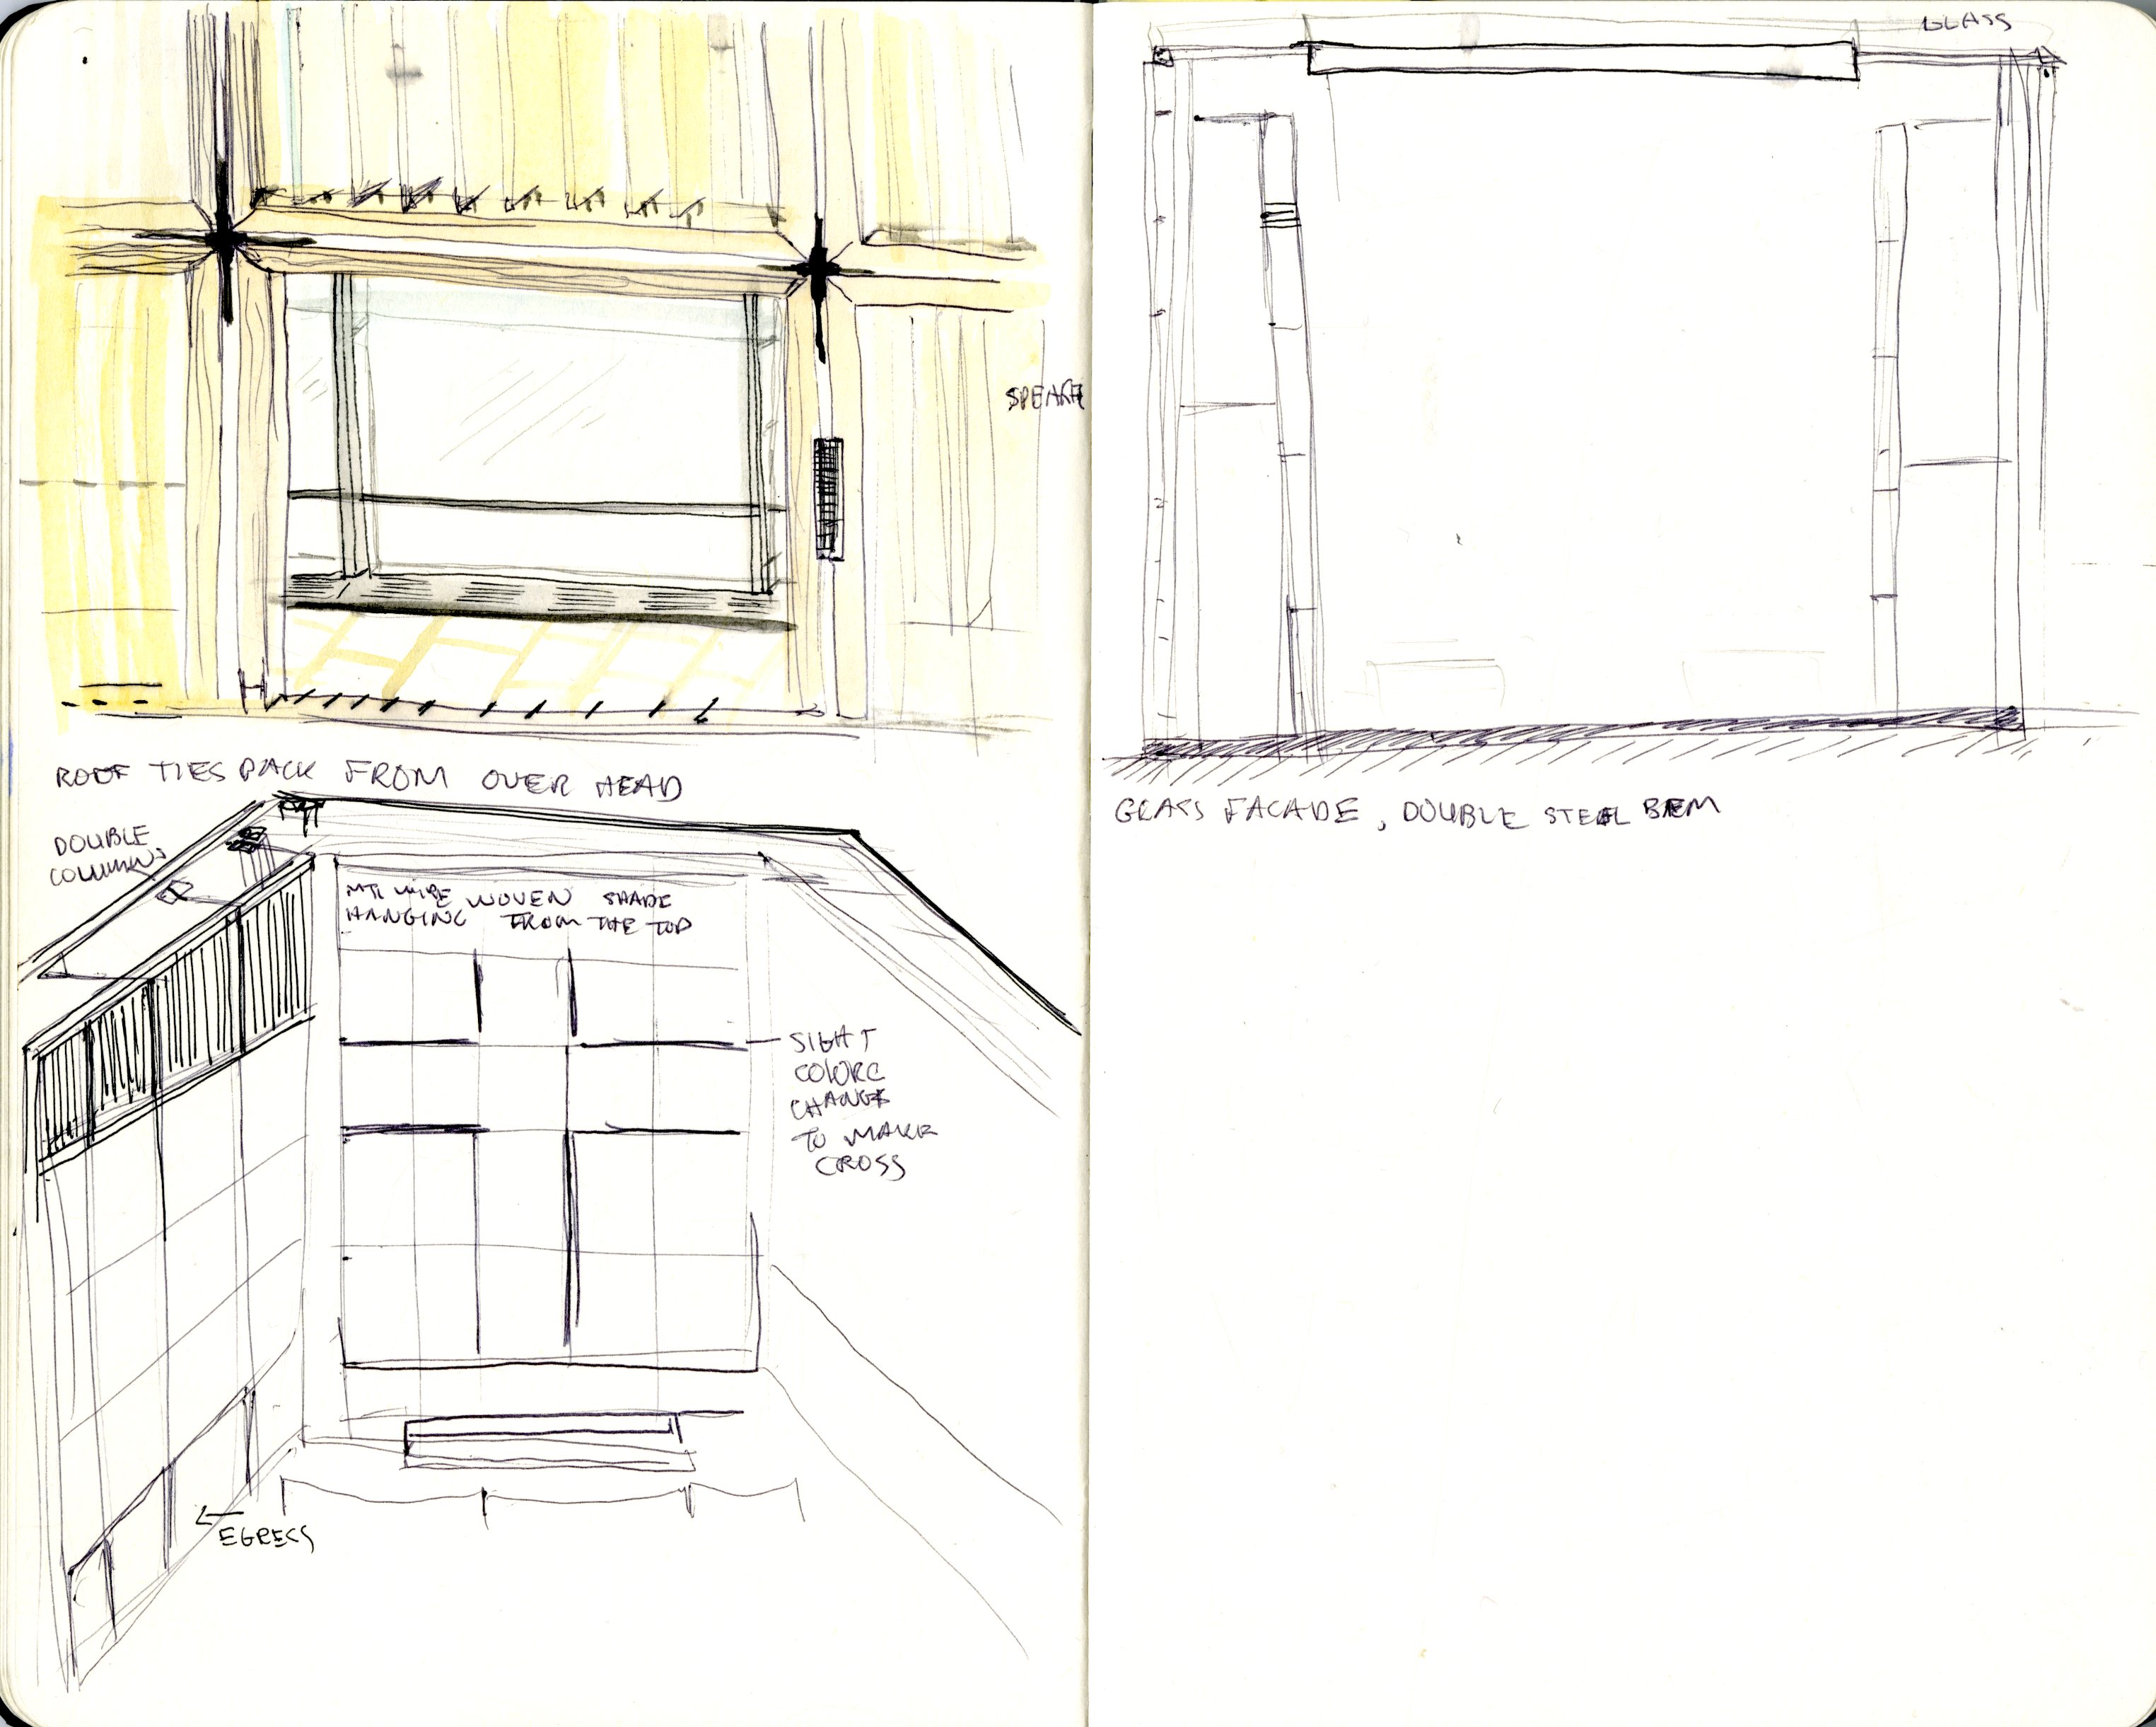 SPEAKE
ROOF TIES BACK FROM OVER HEAD
DOUBLE
COLUMNS
MTL WIRE WOVEN SHADE
HANGING FROM THE TOP
SIGHT
COLORC
CHANGE
TO MAKE
CROSS
EGRESS
GLASS
GLASS FACADE, DOUBLE STEEL BEM